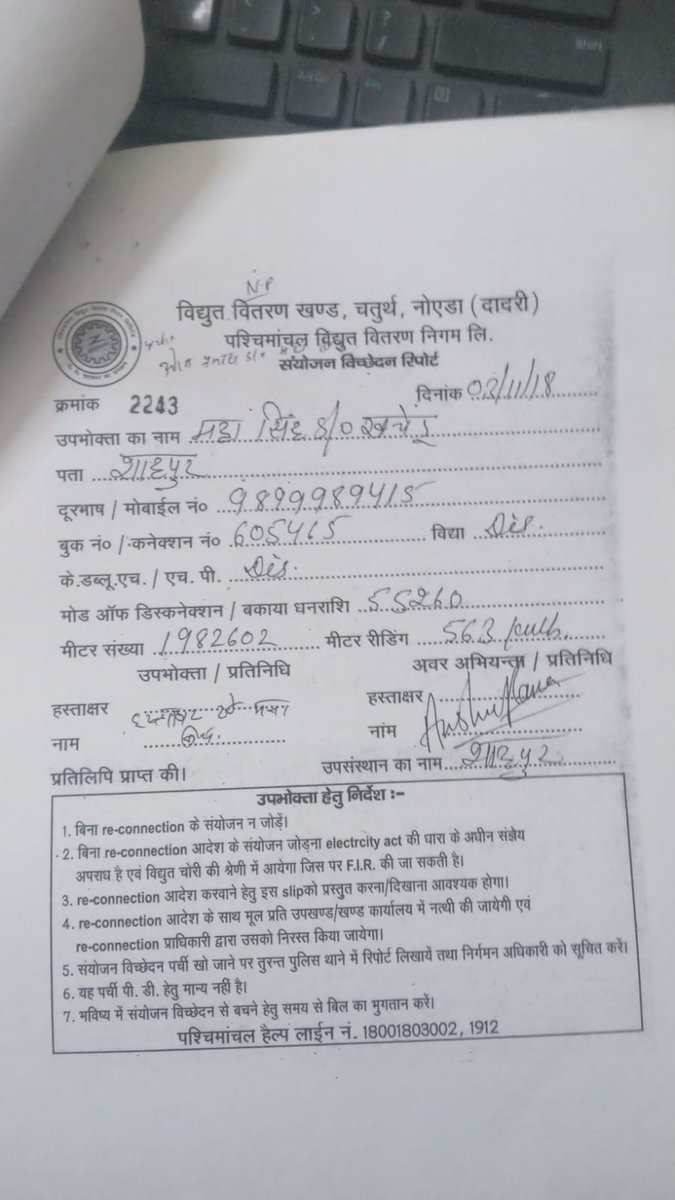 N.P.
विद्युत वितरण खण्ड, चतुर्थ, नोएडा (दादरी)
पश्चिमांचल विद्युत वितरण निगम लि.
संयोजन विच्छेदन रिपोर्ट
क्रमांक 2243 दिनांक 03/11/18
उपभोक्ता का नाम महा सिंह s/o खचेडू
पता शाहपुर
दूरभाष / मोबाईल नं० 9899989415
बुक नं० / कनेक्शन नं० 605415 विद्या Dis.
के.डब्लू.एच. / एच. पी. Dis.
मोड ऑफ डिस्कनेक्शन / बकाया धनराशि 55260
मीटर संख्या 1982602 मीटर रीडिंग 563
उपभोक्ता / प्रतिनिधि अवर अभियन्ता / प्रतिनिधि
हस्ताक्षर हस्ताक्षर
नाम नांम
प्रतिलिपि प्राप्त की। उपसंस्थान का नाम शाहपुर
उपभोक्ता हेतु निर्देश :-
1. बिना re-connection के संयोजन न जोड़ें।
2. बिना re-connection आदेश के संयोजन जोड़ना electrcity act की धारा के अधीन संज्ञेय
अपराध है एवं विद्युत चोरी की श्रेणी में आयेगा जिस पर F.I.R. की जा सकती है।
3. re-connection आदेश करवाने हेतु इस slipको प्रस्तुत करना/दिखाना आवश्यक होगा।
4. re-connection आदेश के साथ मूल प्रति उपखण्ड/खण्ड कार्यालय में नत्थी की जायेगी एवं
re-connection प्राधिकारी द्वारा उसको निरस्त किया जायेगा।
5. संयोजन विच्छेदन पर्ची खो जाने पर तुरन्त पुलिस थाने में रिपोर्ट लिखायें तथा निर्गमन अधिकारी को सूचित करें।
6. यह पर्ची पी. डी. हेतु मान्य नहीं है।
7. भविष्य में संयोजन विच्छेदन से बचने हेतु समय से बिल का मुगतान करें।
पश्चिमांचल हैल्प लाईन नं. 18001803002, 1912